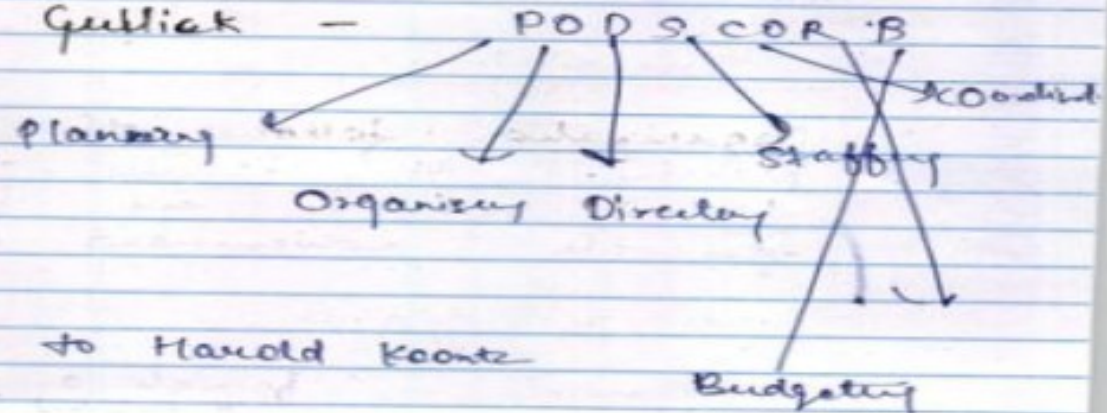 Gullick - PODS COR B
Coordinat.
Planning
Staffing
Organising Directing
to Harold Koontz
Budgeting